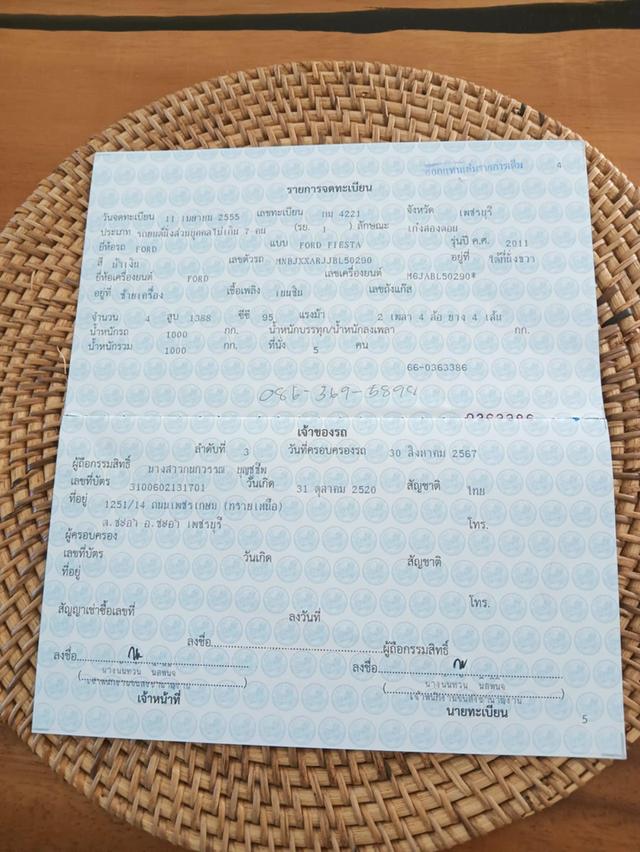 4
รายการจดทะเบียน
วันจดทะเบียน 11 เมษายน 2555 เลขทะเบียน กม 4221 จังหวัด เพชรบุรี
ประเภท รถยนต์นั่งส่วนบุคคลไม่เกิน 7 คน (รย. 1 ) ลักษณะ เก๋งสองตอน
ยี่ห้อรถ FORD แบบ FORD FIESTA รุ่นปี ค.ศ. 2011
สี น้ำเงิน เลขตัวรถ MNBJXXARJJBL50290 อยู่ที่ ใต้ที่นั่งขวา
ยี่ห้อเครื่องยนต์ FORD เลขเครื่องยนต์ M6JABL50290*
อยู่ที่ ซ้ายเครื่อง เชื้อเพลิง เบนซิน เลขถังแก๊ส
จำนวน 4 สูบ 1388 ซีซี 95 แรงม้า 2 เพลา 4 ล้อ ยาง 4 เส้น
น้ำหนักรถ 1000 กก. น้ำหนักบรรทุก/น้ำหนักลงเพลา กก.
น้ำหนักรวม 1000 กก. ที่นั่ง 5 คน
66-0363386
086-369-5898
0363386
เจ้าของรถ
ลำดับที่ 3 วันที่ครอบครองรถ 30 สิงหาคม 2567
ผู้ถือกรรมสิทธิ์ นางสาวกนกวรรณ บุญชูชีพ
เลขที่บัตร 3100602131701 วันเกิด 31 ตุลาคม 2520 สัญชาติ ไทย
ที่อยู่ 1251/14 ถนนเพชรเกษม (ทรายเหนือ)
ต.ชะอำ อ.ชะอำ เพชรบุรี โทร.
ผู้ครอบครอง
เลขที่บัตร วันเกิด สัญชาติ
ที่อยู่
โทร.
สัญญาเช่าซื้อเลขที่ ลงวันที่
ลงชื่อ ผู้ถือกรรมสิทธิ์
ลงชื่อ ลงชื่อ
เจ้าหน้าที่ นายทะเบียน
5